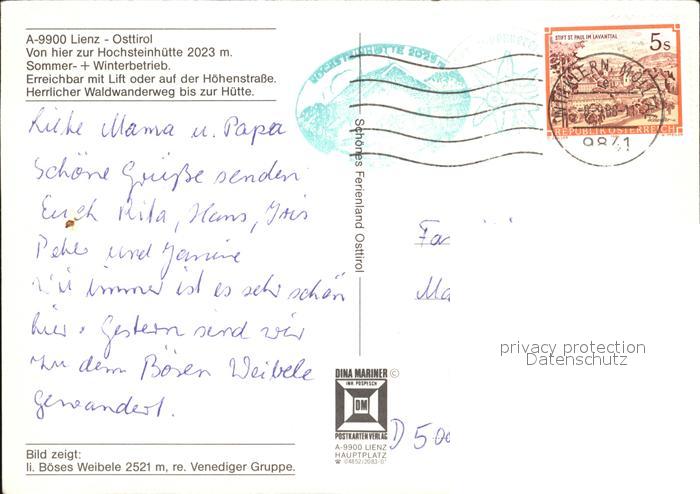 A-9900 Lienz - Osttirol
Von hier zur Hochsteinhütte 2023 m.
Sommer- + Winterbetrieb.
Erreichbar mit Lift oder auf der Höhenstraße.
Herrlicher Waldwanderweg bis zur Hütte.
Liebe Mama u. Papa
Schöne Grüße senden
Euch Rita, Hans, Iris
Peter und Janine
Wie immer ist es sehr schön
hier. Gestern sind wir
zu dem Bösen Weibele
gewandert.
Bild zeigt:
li. Böses Weibele 2521 m, re. Venediger Gruppe.
Schönes Ferienland Osttirol
HOCHSTEINHÜTTE 2023
STIFT ST. PAUL IM LAVANTTAL
5s
REPUBLIK ÖSTERREICH
9841
Fa
Ma
D 5
privacy protection
Datenschutz
DINA MARINER ©
INH. POSPISCH
DM
POSTKARTENVERLAG
A-9900 LIENZ
HAUPTPLATZ